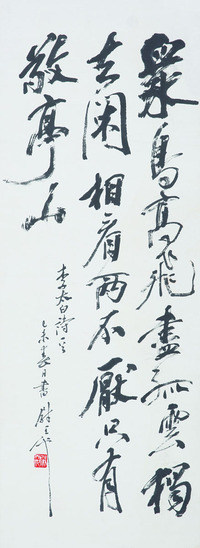 眾鳥高飛盡孤雲獨
去閑相看兩不厭只有
敬亭山
李太白詩
己未日書